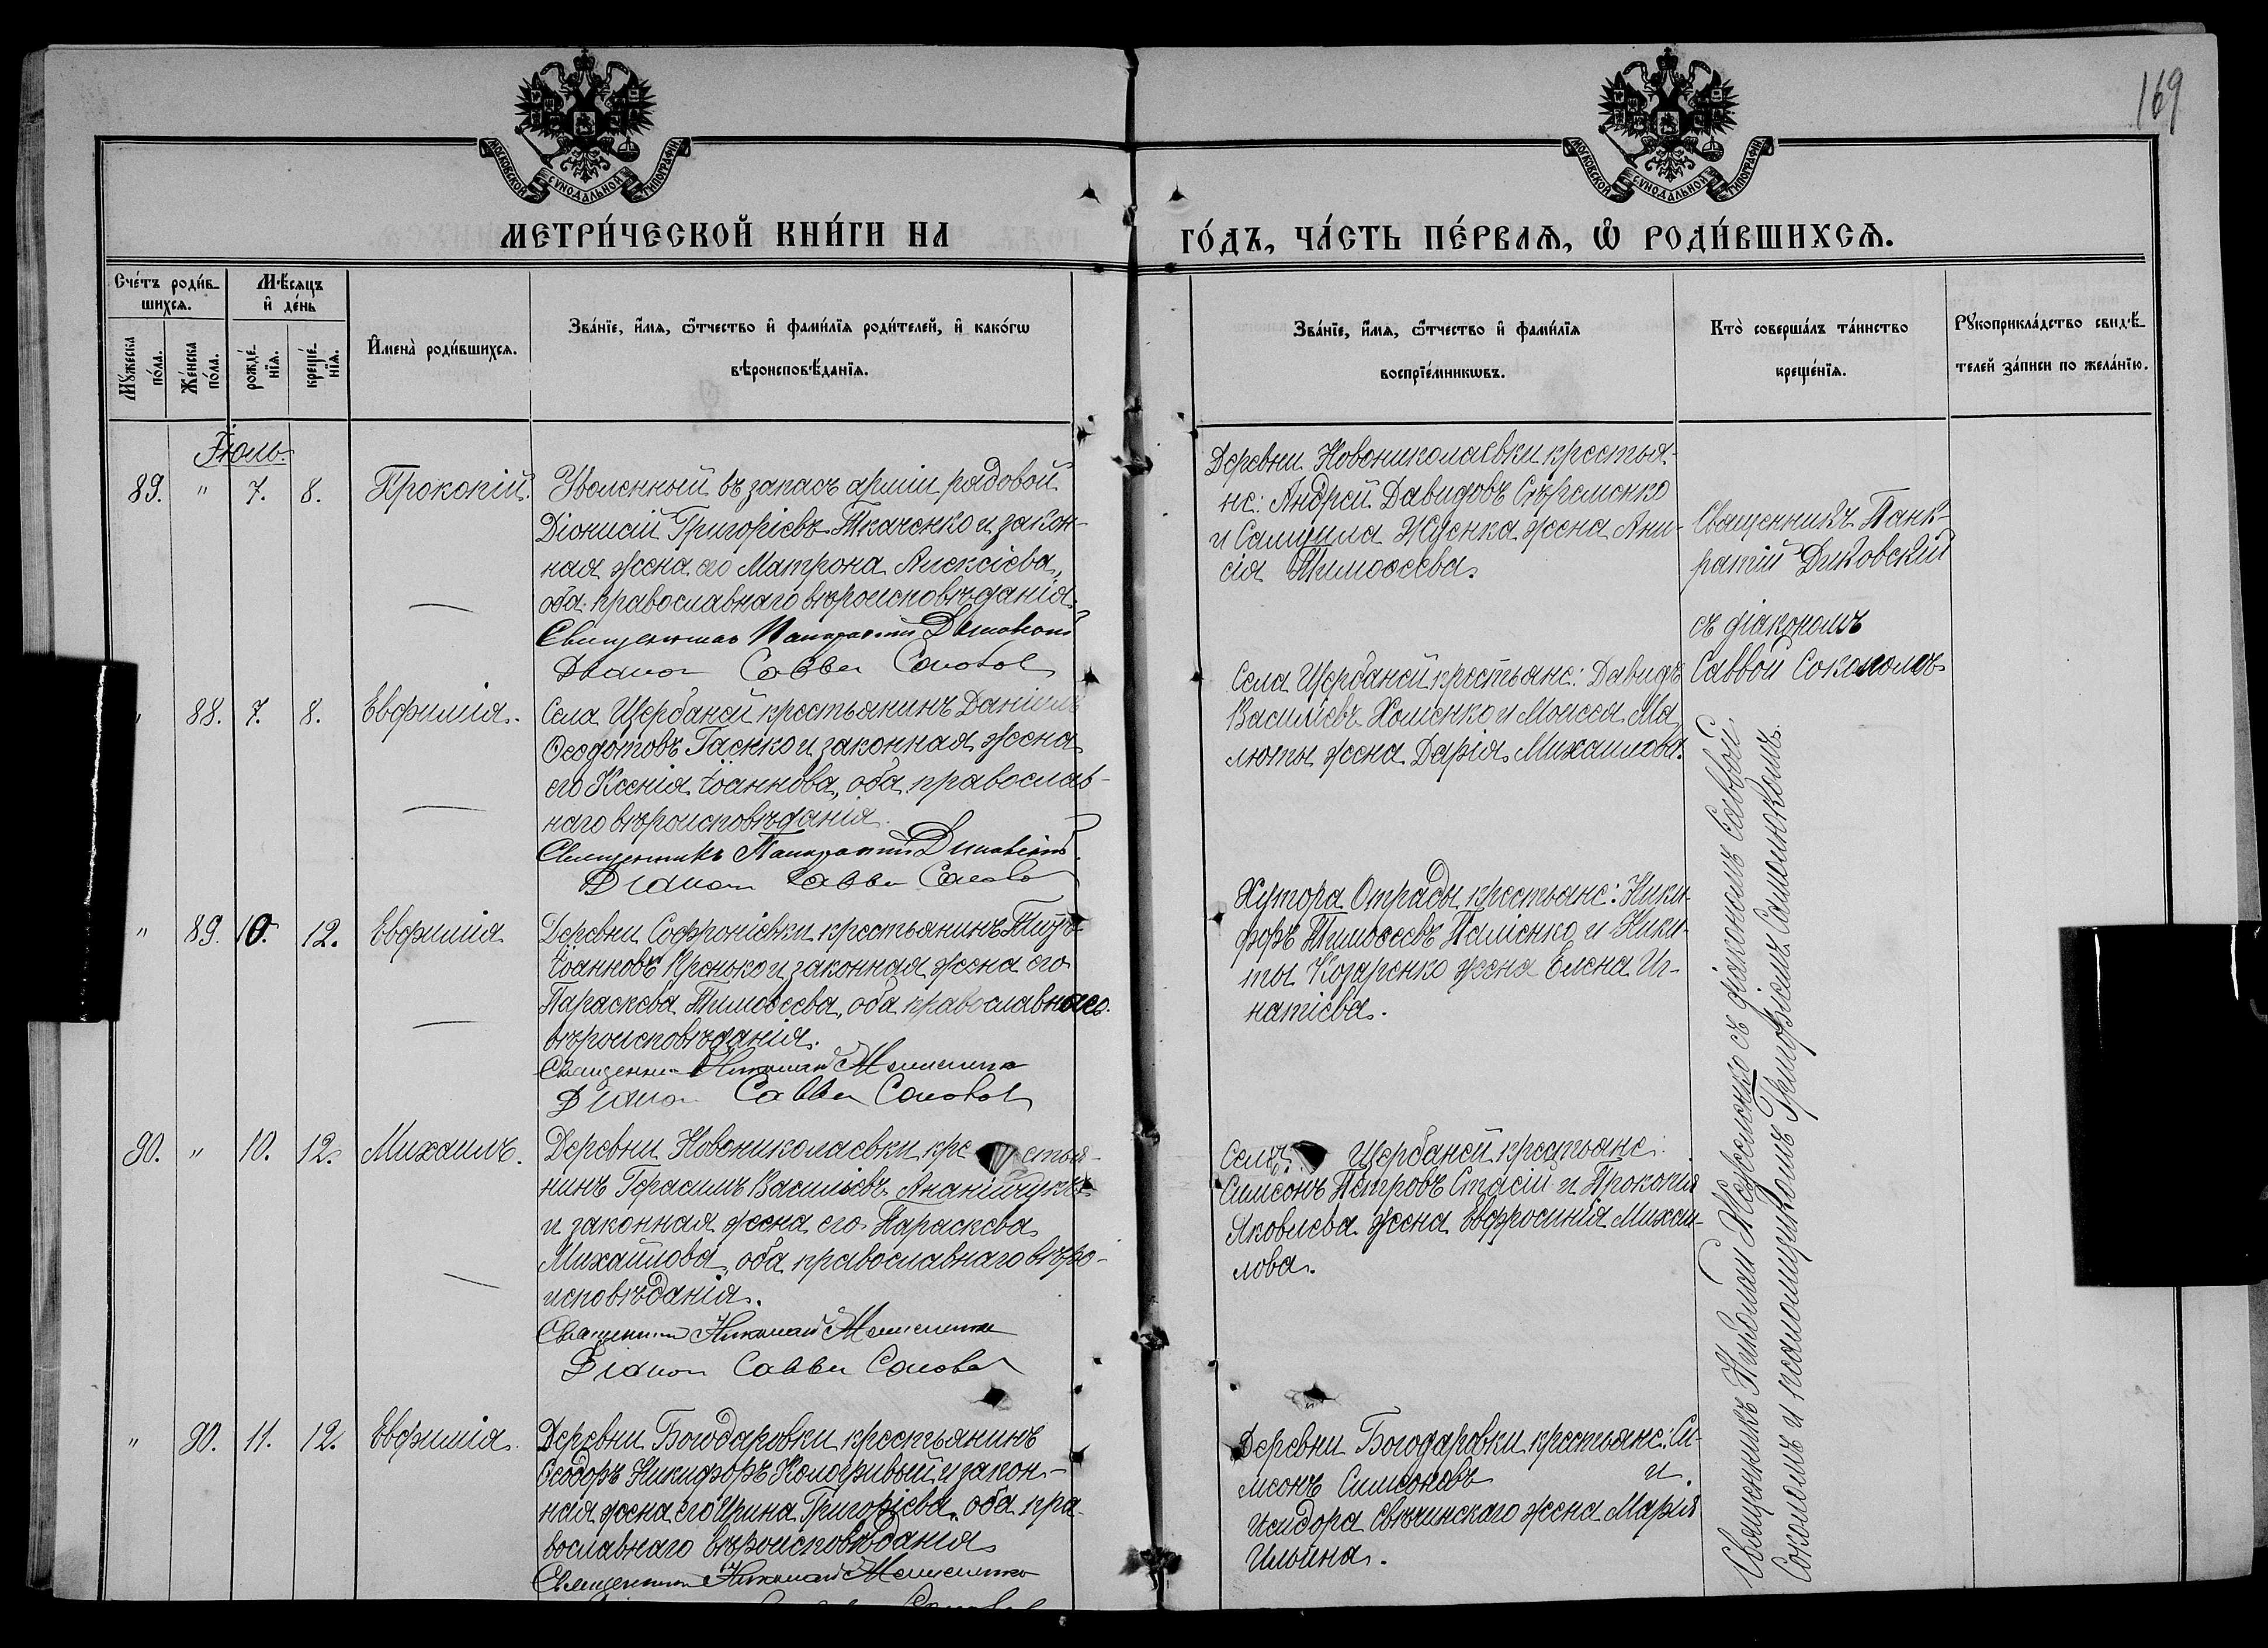 169
МОСКОВСКОЙ СУНОДАЛЬНОЙ ТИПОГРАФІИ
МОСКОВСКОЙ СУНОДАЛЬНОЙ ТИПОГРАФІИ
МЕТРИ́ЧЕСКОЙ КНИ́ГИ НА
ГО́ДЪ, ЧА́СТЬ ПЕ́РВАѦ, Ѡ РОДИ́ВШИХСѦ.
Сче́тъ роди́в-
шихсѧ.
Мꙋ́жеска
по́ла.
Же́нска
по́ла.
Мѣ́сѧцъ
и де́нь
рожде́-
нїѧ.
креще́-
нїѧ.
Имена̀ роди́вшихсѧ.
Зва́нїе, и́мѧ, ѻ́тчество и фами́лїѧ роди́телей, и како́гѡ
вѣроисповѣ́данїѧ.
Зва́нїе, и́мѧ, ѻ́тчество и фами́лїѧ
воспрїе́мникѡвъ.
Кто̀ соверша́лъ та́инство
креще́нїѧ.
Рꙋкоприкла́дство свидѣ́-
телей за́писи по жела́нїю.
Іюль.
89. " 7. 8. Прокопій.
Уволенный въ запасъ арміи рядовой
Діонисій Григоріевъ Ткаченко и закон-
ная жена его Матрона Алексіева,
оба православнаго вѣроисповѣданія.
Священникъ Панкратій Диковскій
Діаконъ Савва Соколов
Деревни Новониколаевки крестья-
не: Андрей Давидовъ
и Самуила Жденка жена Ани-
сія Тимоѳеева.
Священникъ Панк-
ратій Диковскій
съ діакономъ
Саввой Соколомъ
" 88. 7. 8. Евфимія.
Села Щербаней крестьянинъ Даніилъ
Ѳеодотовъ Гаенко и законная жена
его Ксенія Іоаннова, оба православ-
наго вѣроисповѣданія.
Священникъ Панкратій Диковскій
Діаконъ Савва Соколов
Села Щербаней крестьяне: Давидъ
Василіевъ Хоменко и Моисея Ма-
люты жена Дарія Михаилова.
" 89. 10. 12. Евфимія
Деревни Софроніевки крестьянинъ Титъ
Іоанновъ и законная жена его
Параскева Тимоѳеева, оба православнаго
вѣроисповѣданія.
Священникъ Николай
Діаконъ Савва Соколов
Хутора Отрады крестьяне: Ники-
форъ Тимоѳеевъ и Ники-
ты Козаренко жена Елена Иг-
натіева.
90. " 10. 12. Михаилъ.
Деревни Новониколаевки кре стья-
нинъ Герасимъ Василіевъ Ананійчукъ
и законная жена его Параскева
Михайлова, оба православнаго вѣро-
исповѣданія.
Священникъ Николай
Діаконъ Савва Соколов
Села Щербаней крестьяне:
Симеонъ Петровъ Стасій и Прокопія
Яковлева жена Евфросинія Михаи-
лова.
" 90. 11. 12. Евфимія.
Деревни Богодаровки крестьянинъ
Ѳеодоръ Никифоръ Кологривый и закон-
ная жена его Ирина Григоріева, оба пра-
вославнаго вѣроисповѣданія
Священникъ Николай
Деревни Богодаровки крестьяне: Си-
меонъ Симеоновъ и
Исидора Свѣчинскаго жена Марія
Ильина.
Священникъ Николай съ діакономъ Саввой
Соколомъ и псаломщикомъ